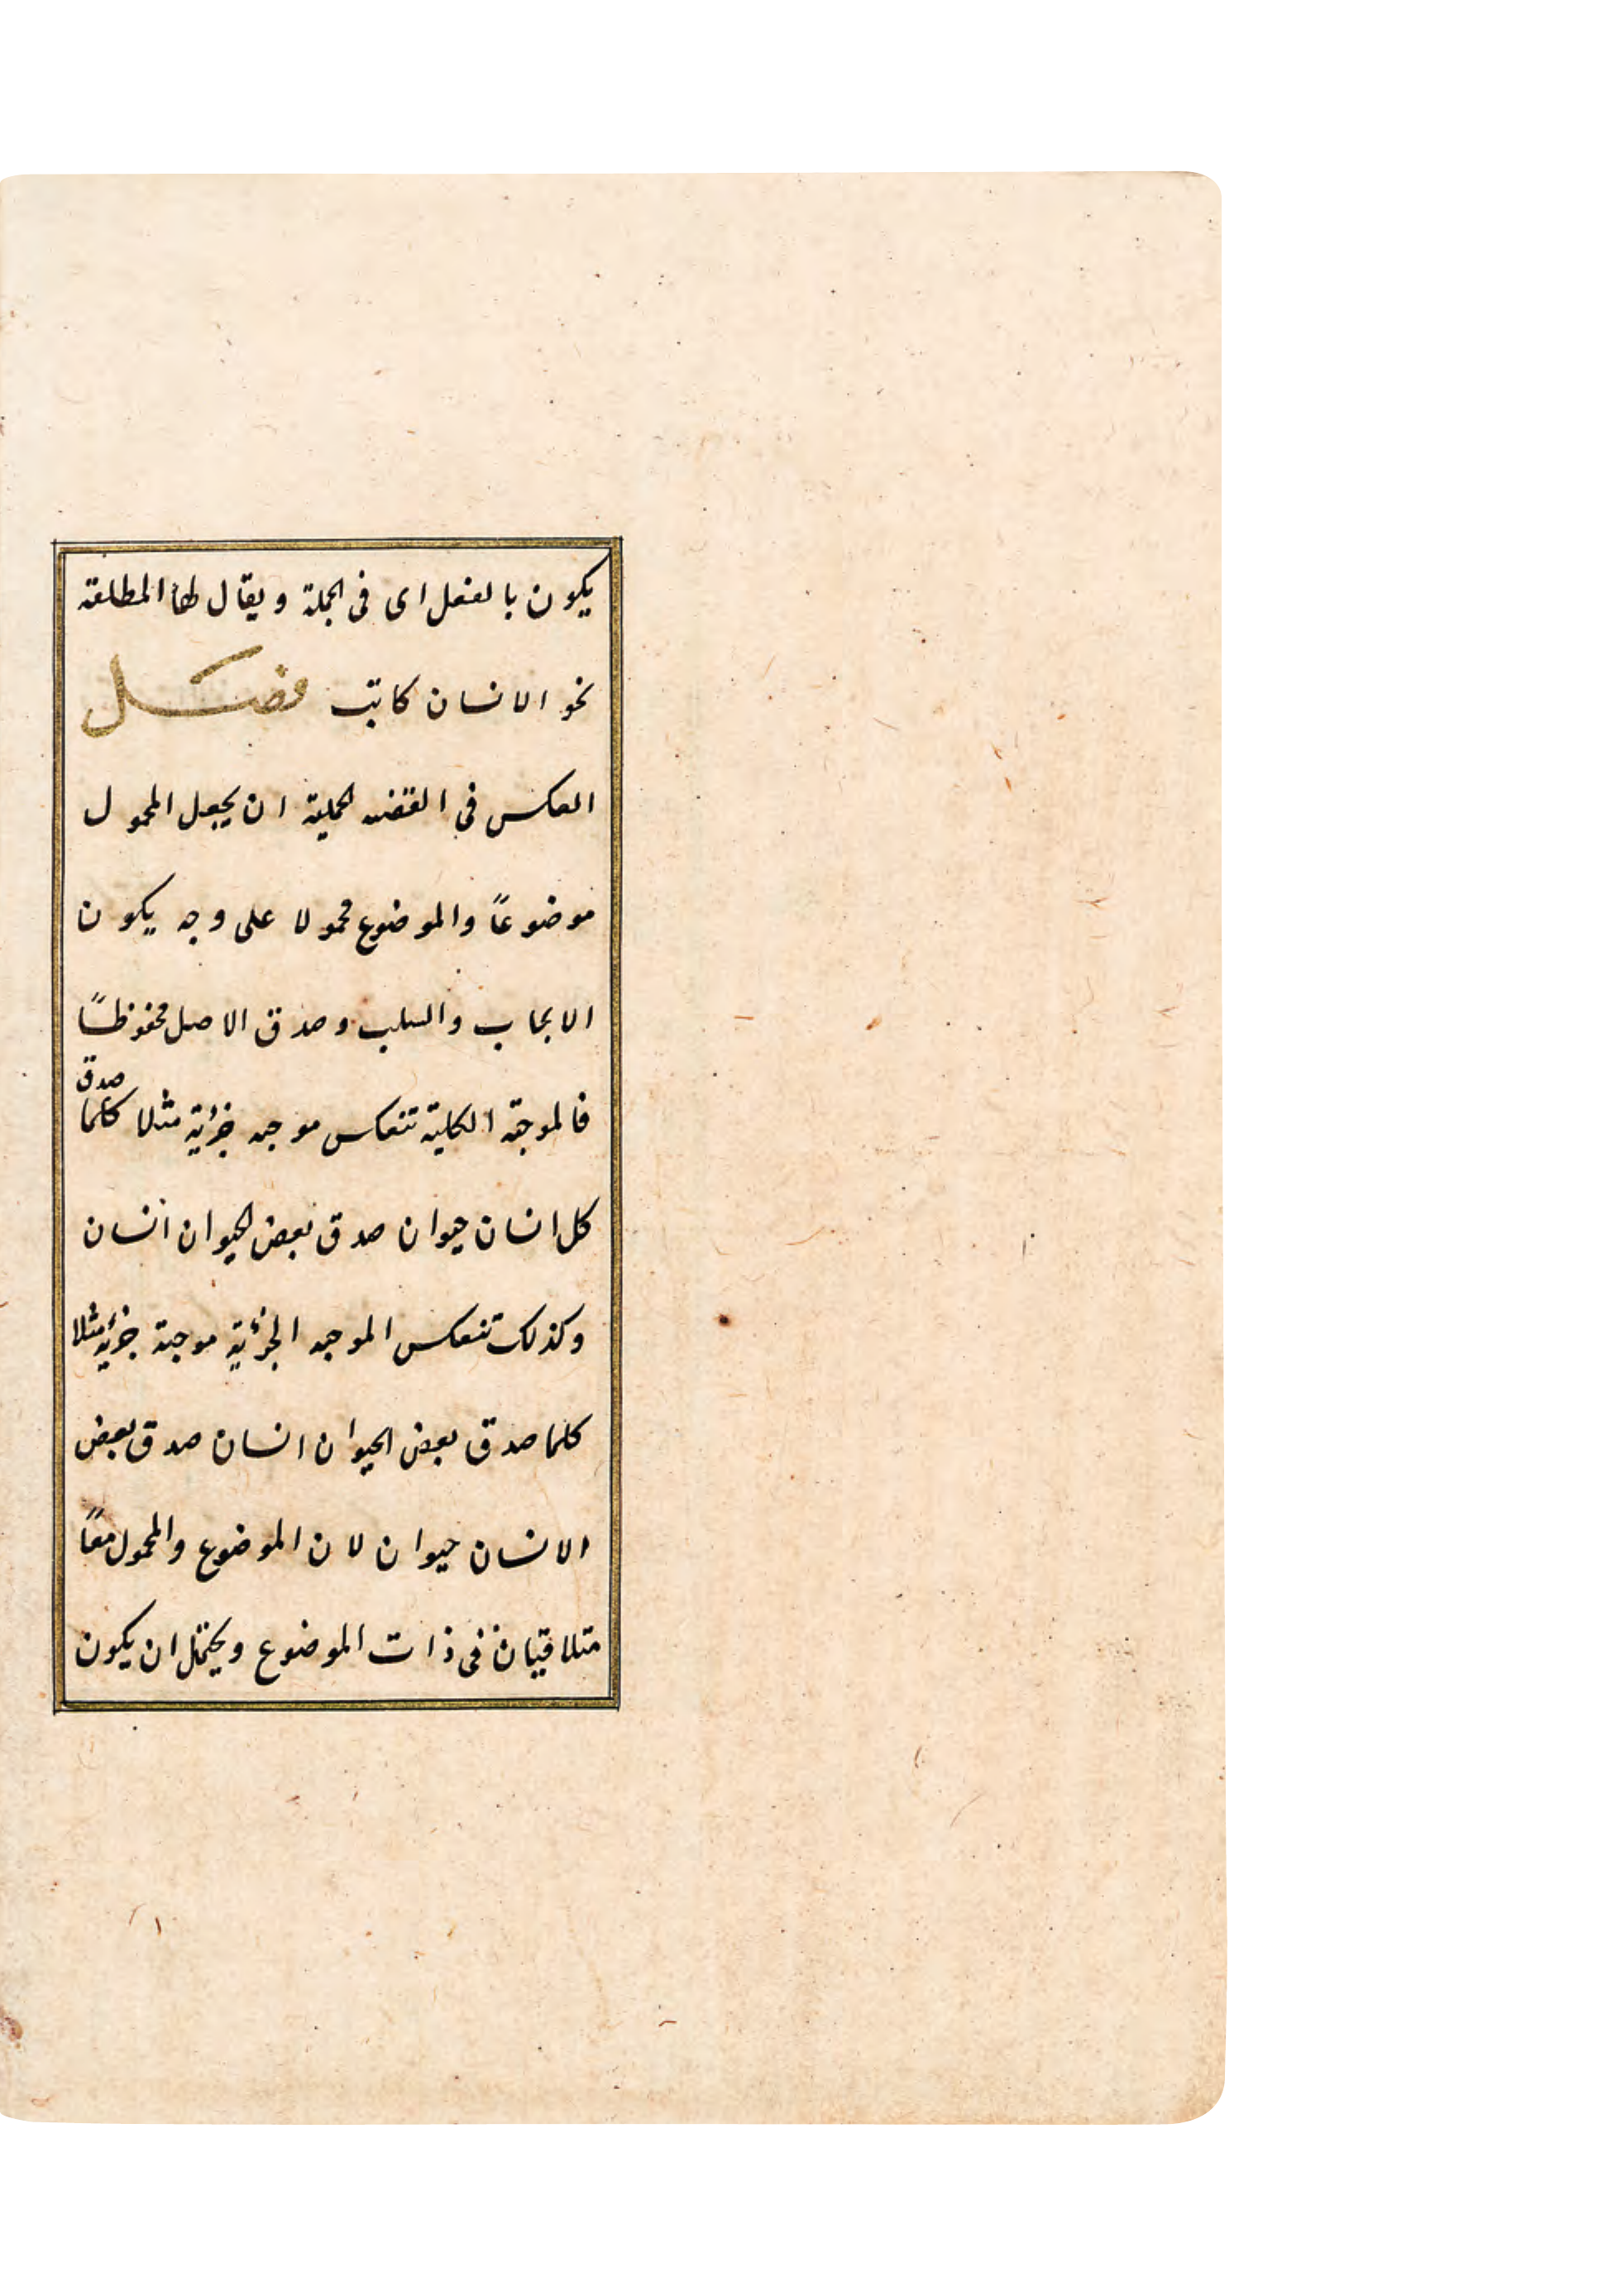 يكون بالفعل اى فى الجملة ويقال لها المطلقة
نحو الانسان كاتب فصل
العكس فى القضيه الحملية ان يجعل المحمول
موضوعاً والموضوع محمولا على وجه يكون
الايجاب والسلب وصدق الاصل محفوظاً
فالموجبة الكلية تنعكس موجبه جزئية مثلا كلما صدق
كل انسان حيوان صدق بعض الحيوان انسان
وكذلك تنعكس الموجبه الجزئية موجبة جزئية مثلا
كلما صدق بعض الحيوان انسان صدق بعض
الانسان حيوان لان الموضوع والمحمول معاً
متلاقيان فى ذات الموضوع ويحتمل ان يكون